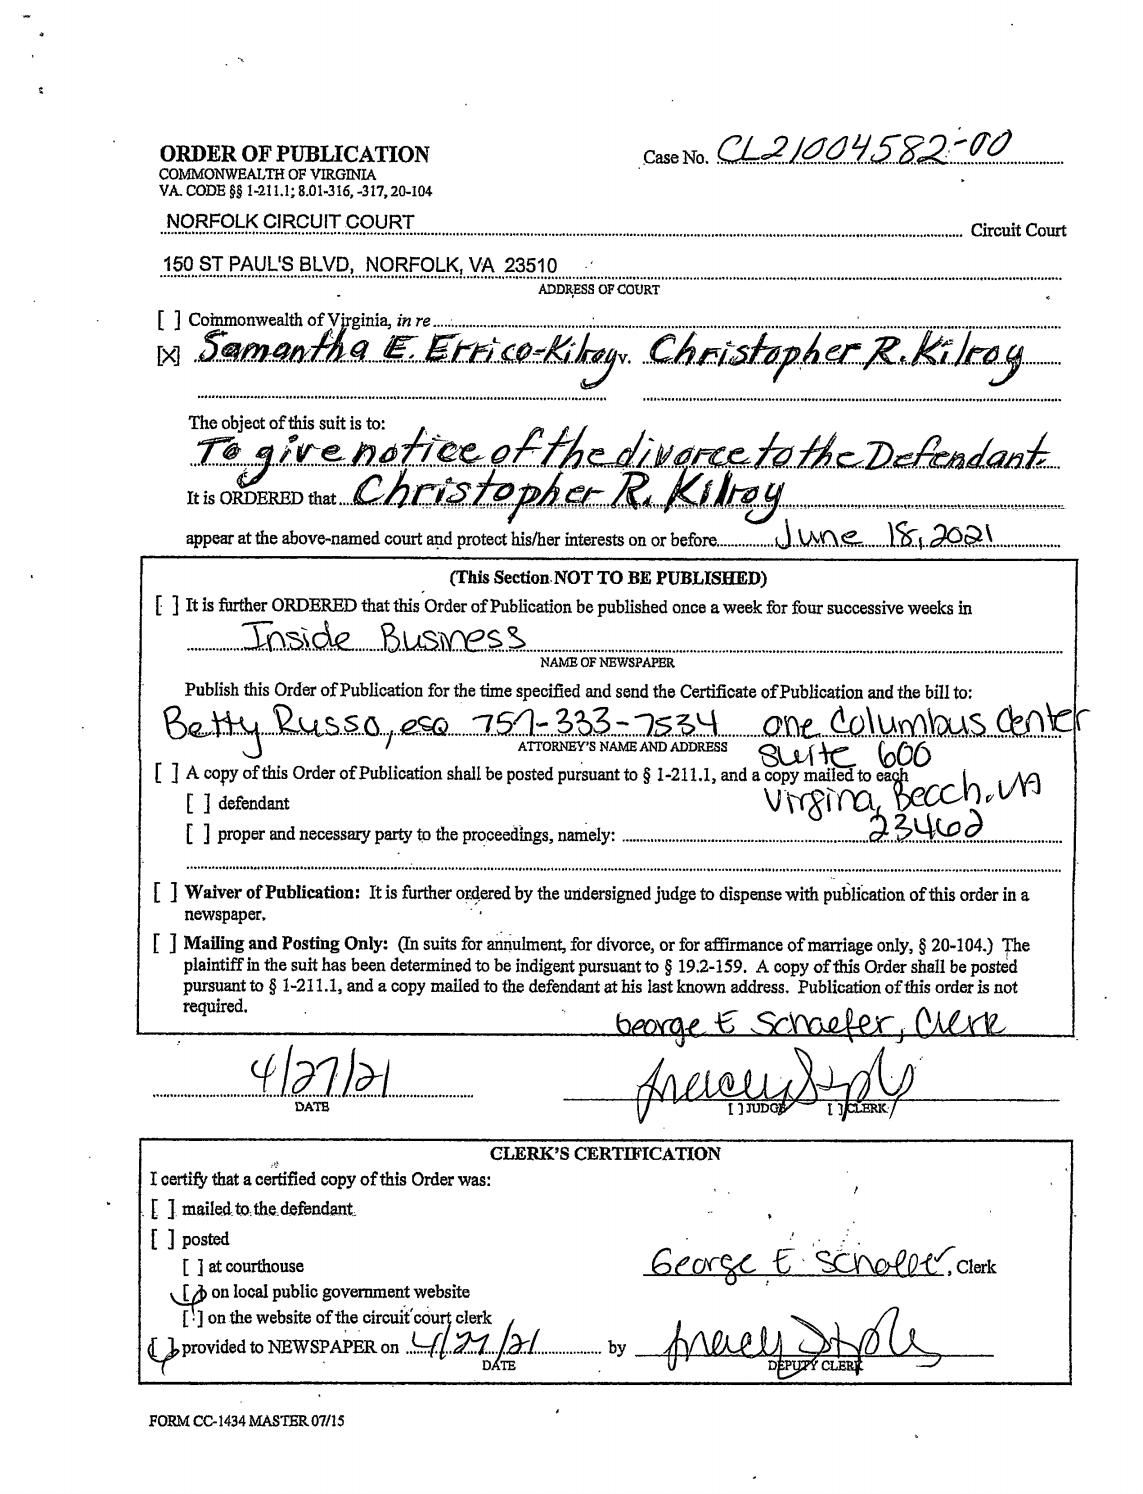 ORDER OF PUBLICATION
Case No. CL21004582-00
COMMONWEALTH OF VIRGINIA
VA. CODE §§ 1-211.1; 8.01-316, -317, 20-104
NORFOLK CIRCUIT COURT Circuit Court
150 ST PAUL'S BLVD, NORFOLK, VA 23510
ADDRESS OF COURT
[ ] Commonwealth of Virginia, in re
[X] Samantha E. Errico-Kilroy v. Christopher R. Kilroy
The object of this suit is to:
To give notice of the divorce to the Defendant.
It is ORDERED that Christopher R. Kilroy
appear at the above-named court and protect his/her interests on or before June 18, 2021
(This Section NOT TO BE PUBLISHED)
[ ] It is further ORDERED that this Order of Publication be published once a week for four successive weeks in
Inside Business
NAME OF NEWSPAPER
Publish this Order of Publication for the time specified and send the Certificate of Publication and the bill to:
Betty Russo, esq 757-333-7534 One Columbus Center
ATTORNEY'S NAME AND ADDRESS
Suite 600
[ ] A copy of this Order of Publication shall be posted pursuant to § 1-211.1, and a copy mailed to each
[ ] defendant
Virgina Beach, VA
[ ] proper and necessary party to the proceedings, namely:
23462
[ ] Waiver of Publication: It is further ordered by the undersigned judge to dispense with publication of this order in a
newspaper.
[ ] Mailing and Posting Only: (In suits for annulment, for divorce, or for affirmance of marriage only, § 20-104.) The
plaintiff in the suit has been determined to be indigent pursuant to § 19.2-159. A copy of this Order shall be posted
pursuant to § 1-211.1, and a copy mailed to the defendant at his last known address. Publication of this order is not
required.
George E Schaefer, Clerk
4/27/21
DATE
[ ] JUDGE [ ] CLERK
CLERK'S CERTIFICATION
I certify that a certified copy of this Order was:
[ ] mailed to the defendant
[ ] posted
[ ] at courthouse
George E Schaefer, Clerk
[ ] on local public government website
[ ] on the website of the circuit court clerk
[ ] provided to NEWSPAPER on 4/27/21 by
DATE
DEPUTY CLERK
FORM CC-1434 MASTER 07/15